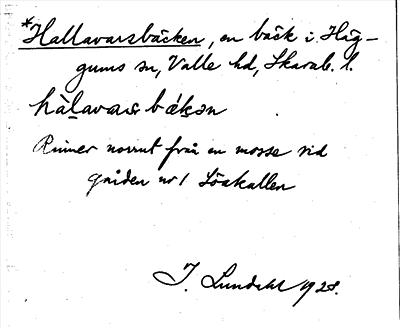 *Hallavarsbäcken, en bäck i Häg-
gums sn, Valle hd, Skarab. l.
bäkən
Rinner norrut från en mosse vid
gården nr 1
I. Lundahl 1928.